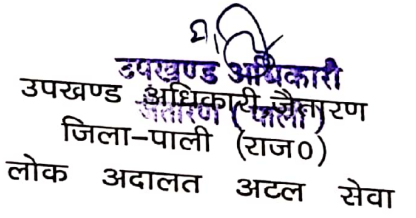 उपखण्ड अधिकारी
जैतारण (पाली)
उपखण्ड अधिकारी जैतारण
जिला-पाली (राज0)
लोक अदालत अटल सेवा